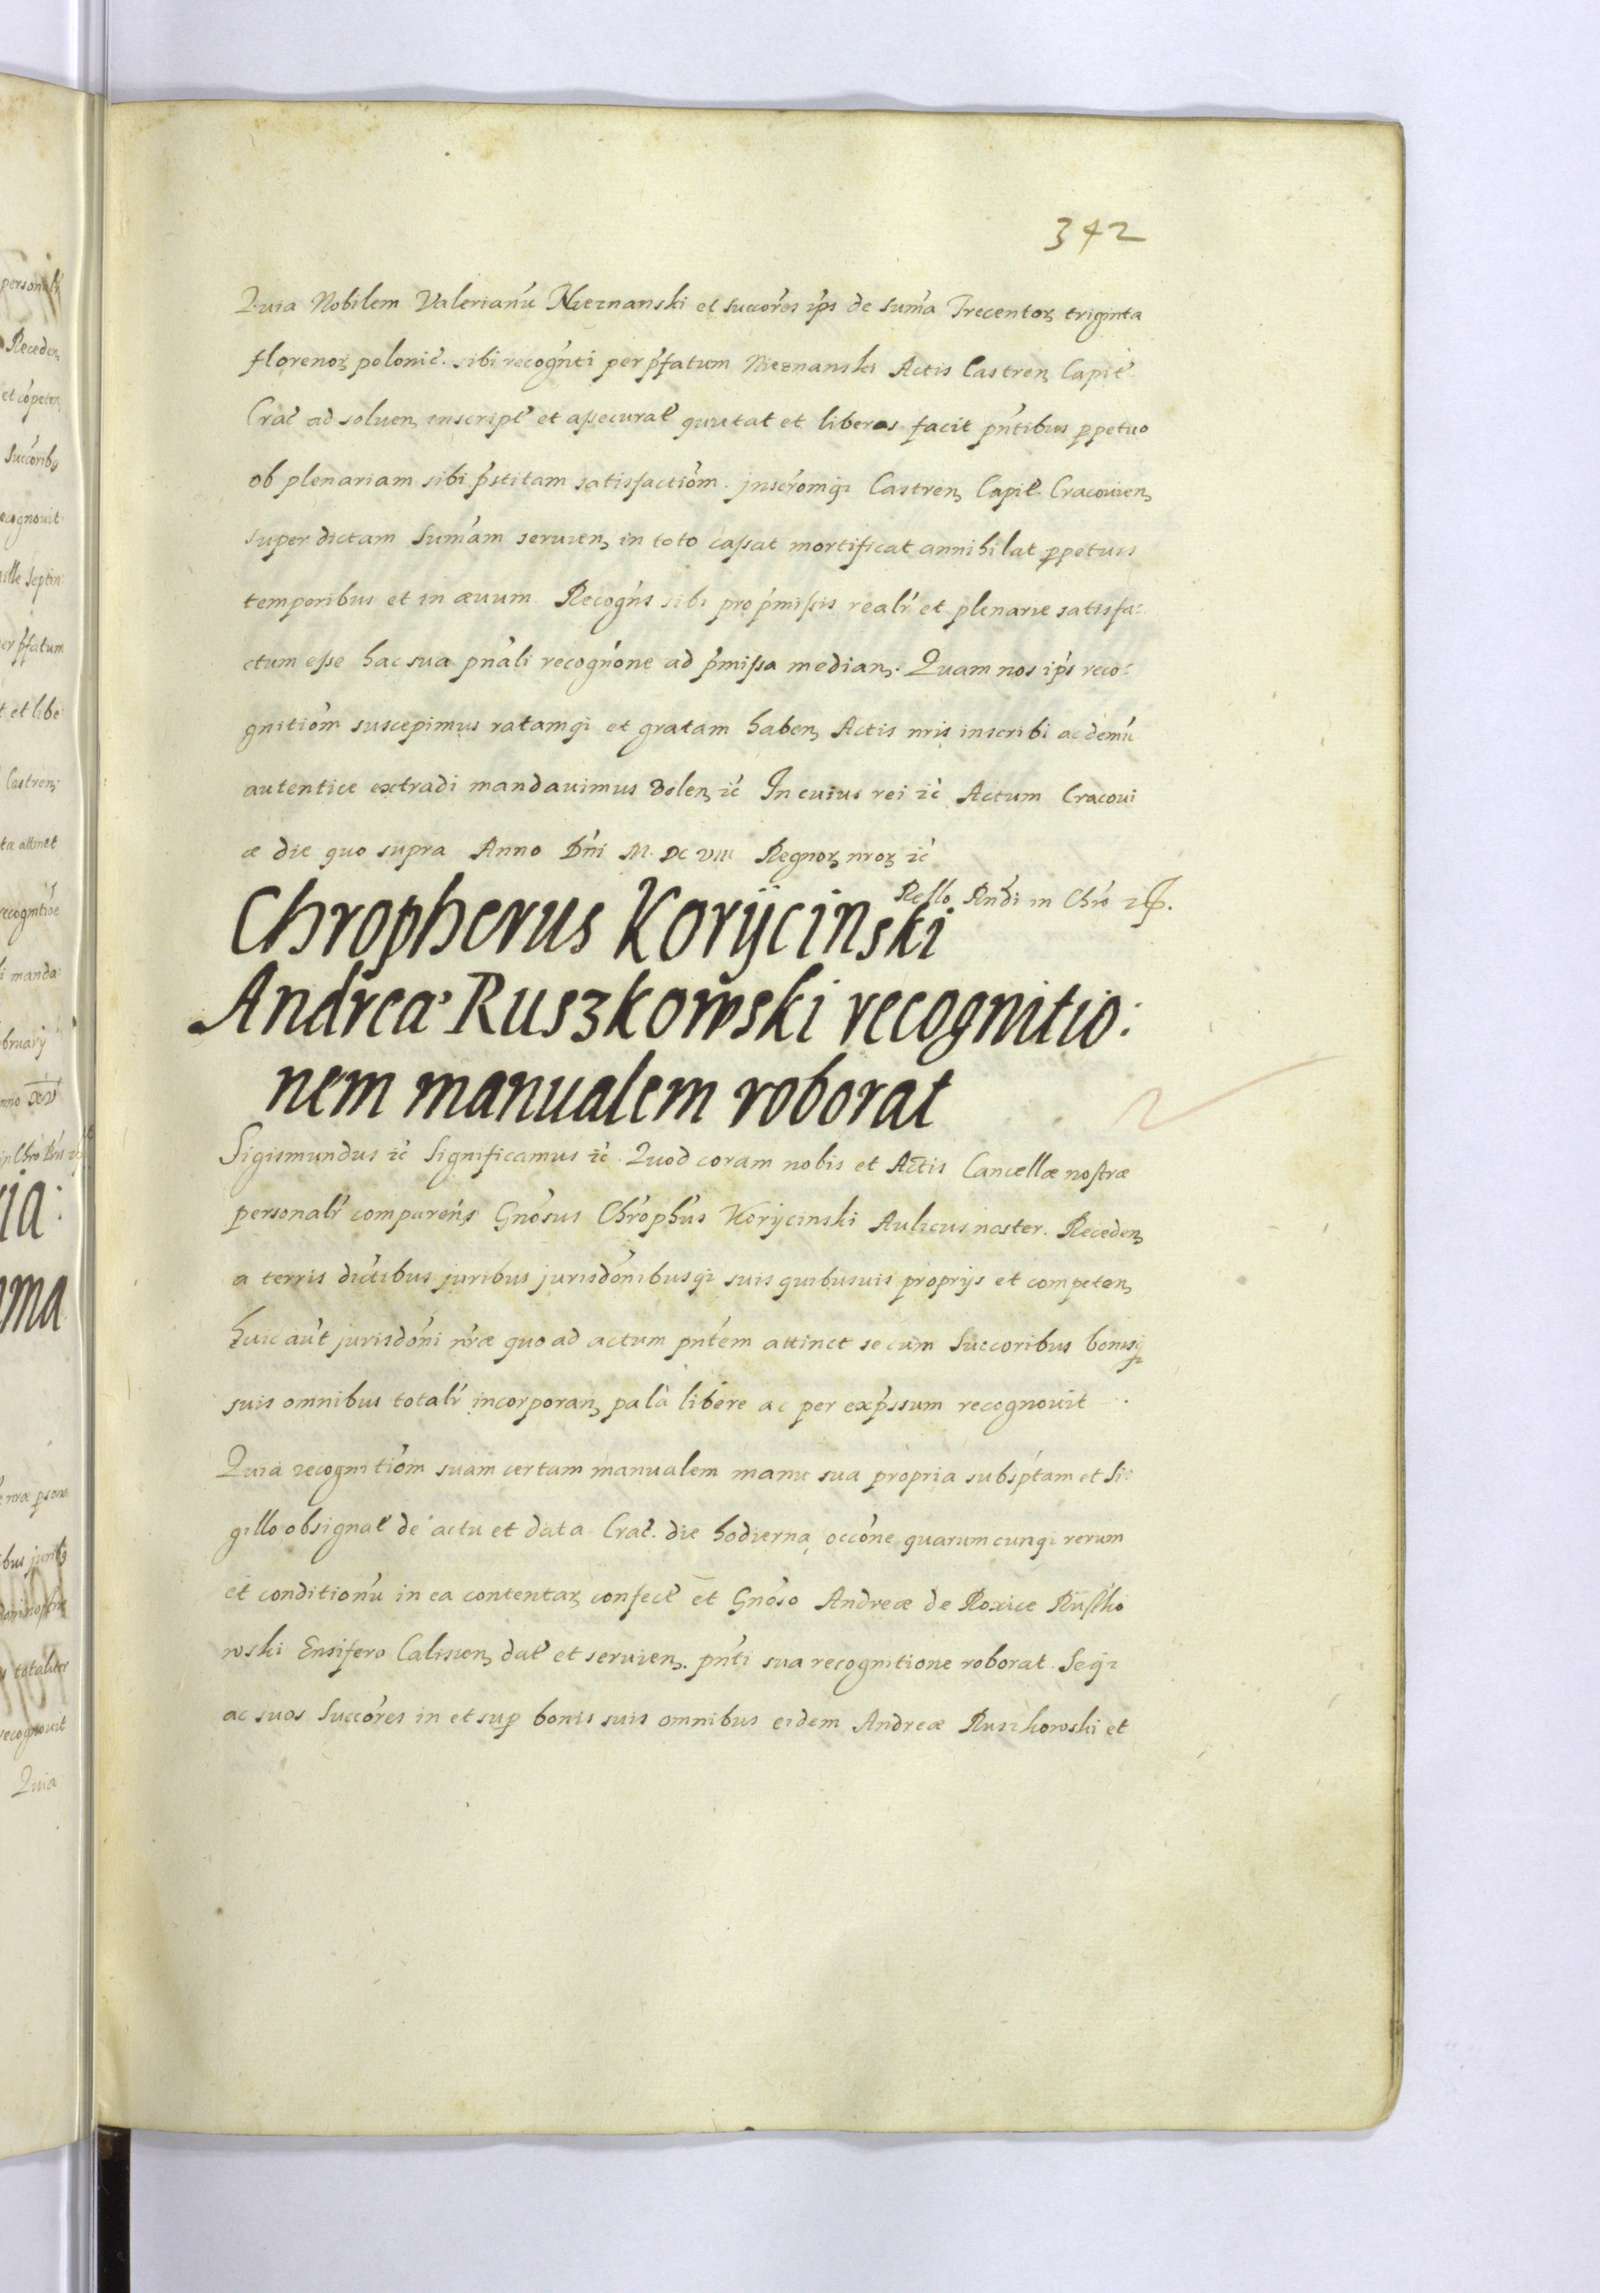 342
Quia Nobilem Valerianu͂ Nieznanski et succo͂res ip͂s de sum͂a Trecentoꝝ triginta
florenoꝝ polonic͂. sibi recogn͂ti per p͂fatum Nieznanski Actis Castren, Capit͂
Crac͂ ad soluen, inscript͂ et assecurat͂ quitat et liberos facit pn͂tibus ꝑpetuo
ob plenariam sibi p͂stitam satisfactio͂m. jnscr͂omqꝫ Castren, Capit͂. Cracouien,
super dictam Sum͂am seruien, in toto cassat mortificat annihilat ꝑpetuis
temporibus et in æuum. Recogn͂s sibi pro p͂missis realr͂ et plenarie satisfa:
ctum esse hac sua pn͂ali recogn͂one ad p͂missa median,. Quam nos ip͂s reco:
gnitio͂m suscepimus ratamqꝫ et gratam haben, Actis nr͂is inscribi ac demu͂
autentice extradi mandauimus dolen, ꝛc͂ In cuius rei ꝛc͂ Actum Cracoui
æ die quo supra Anno Dn͂i M. DC VIII Regnoꝝ nr͂oꝝ ꝛc͂
Rello Rn͂di in Chr͂o
Chropherus Korÿcinski
Andreæ Ruszkowski recognitio:
nem manualem roborat
Sigismundus ꝛc͂ Significamus ꝛc͂. Quod coram nobis et Actis Cancellæ nostræ
personalr͂ comparen͂s Gn͂osus Chr͂oph͂us Korÿcinski Aulicus noster. Receden,
a terris dict͂ibus juribus jurisdo͂nibusqꝫ suis quibusuis proprijs et competen,
huic au͂t jurisdo͂ni nr͂æ quo ad actum pn͂tem attinet se cum Succoribus bonisqꝫ
suis omnibus totalr͂ incorporan, pala͂ libere ac per exp͂ssum recognouit
Quia recognitio͂m suam certam manualem manu sua propria subsp͂tam et Si:
gillo obsignat͂ de actu et data Crac͂. die hodierna occo͂ne quarumcunqꝫ rerum
et conditionu͂ in ea contentaꝝ confect͂ et Gn͂oso Andreæ de Roxice Rusko
wski Ensifero Calisien, dat͂ et seruien,. pn͂ti sua recognitione roborat. Seqꝫ
ac suos Succo͂res in et suꝑ bonis suis omnibus eidem Andreæ Ruszkowski et